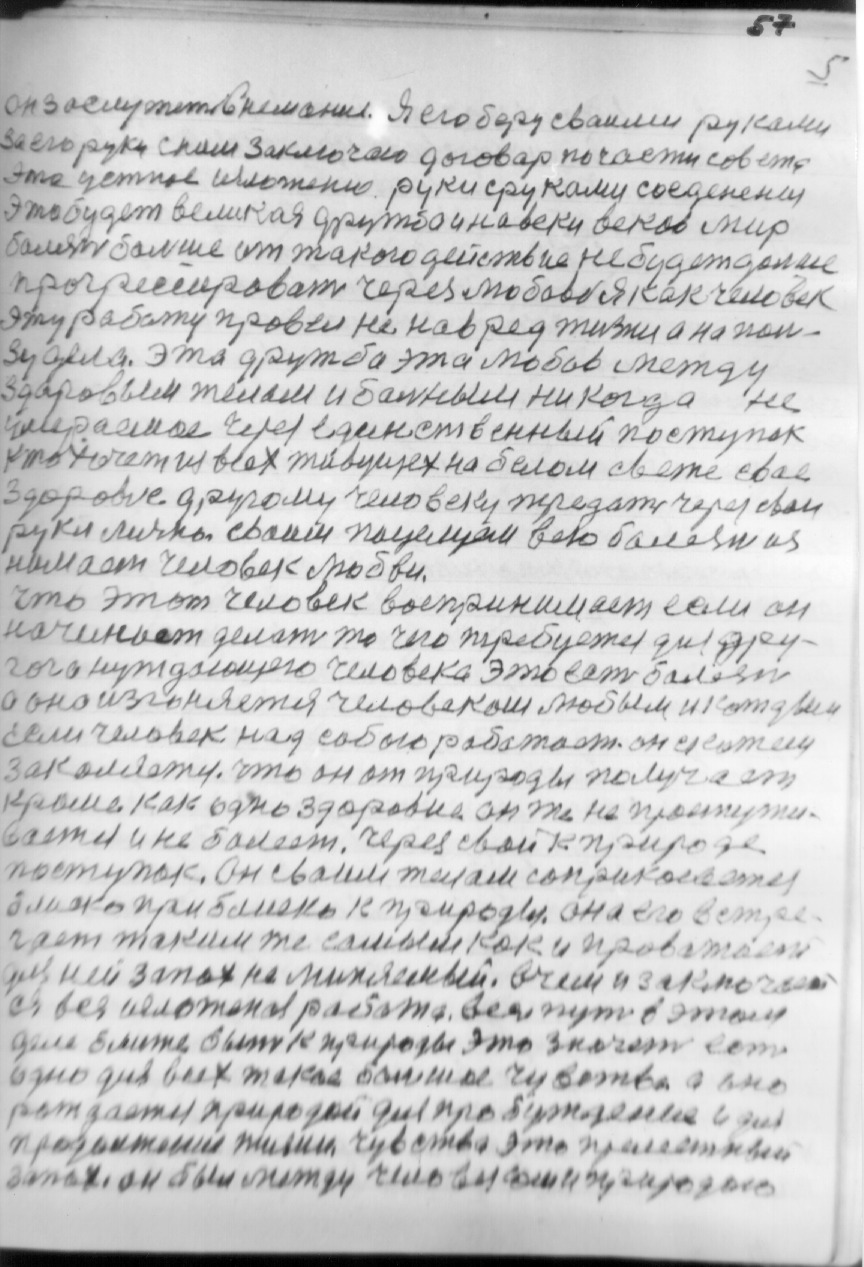 57
5
он заслужет внемание. Я его беру сваими руками
за его руки сним заключаю договар по части совета
эта устное изложению руки сруками соеденены
Это будет великая дружба и навеки веков мир
болезн болше от такого действие не будет далше
прогрессировать через любов Я как человек
эту работу провел не на вред жизни а на пол-
зу дела. Эта дружба эта любов между
здаровым телам и болным никогда не
умераемое через единственный поступак
кто хочет из всех живущех на белом свете свае
здоровие другому человеку передать через сваи
руки лична сваим поцелуем всю болезн из
нимает человек любви.
что этот человек воспринимает если он
начинает делат то чего требуется для дру-
гога нуждающего человека это ест болезн
а она изгоняется человекам любым и каждым
если человек над собою работает. он скажем
закаляется. что он от природы получает
кроме как одно здоровие он же не простужи-
вается и не болеет. через свой к природе
поступок. Он сваим телам соприкосается
близко приблизко к природы. она его встре-
чает таким же самым как и проважает
для ней запах не миняемый. в чем и заключает
ся вся изложеная работа. весь путь в этом
деле ближе быть к природы это значет ест
одно для всех такое болшое чувства а оно
раждается природой для пробуждение и для
продолжение жизни чувства это прелестный
запах. он был между человекам и природаю